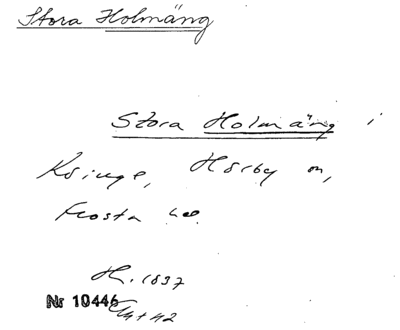 Stora Holmäng
Stora Holmäng i
Ksinge, Hörby sn,
Frosta hd.
H. 1837
Nr 10446